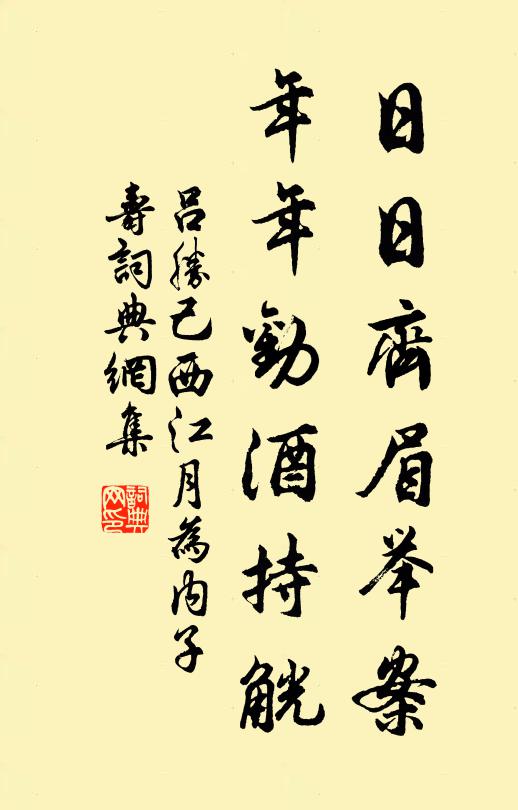 日日齊眉举案
年年勸酒持觥
呂勝己西江月為內子
壽詞典網集
詞典
网印